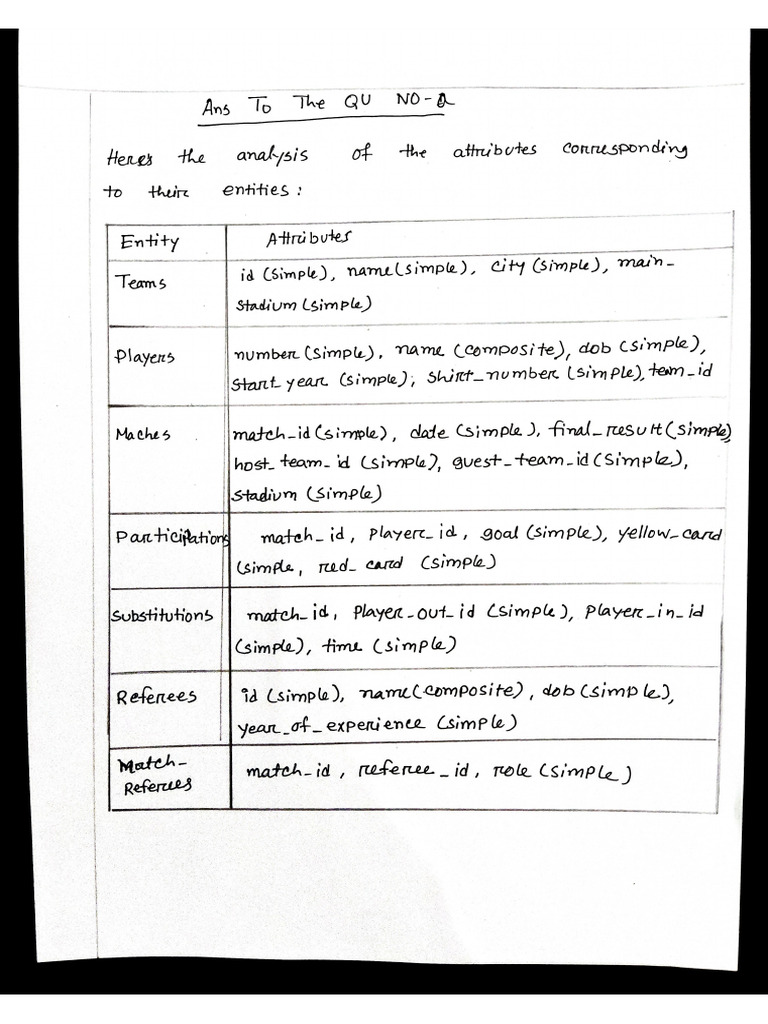 Ans To The QU NO-2
Here's the analysis of the attributes corresponding
to their entities:
Entity Attributes
Teams id (simple), name (simple), city (simple), main_
stadium (simple)
Players number (simple), name (composite), dob (simple),
start year (simple), shirt_number (simple), team_id
Maches match_id (simple), date (simple), final_result (simple),
host_team_id (simple), guest_team_id (simple),
stadium (simple)
Participations match_id, player_id, goal (simple), yellow_card
(simple, red_card (simple)
Substitutions match_id, player_out_id (simple), player_in_id
(simple), time (simple)
Referees id (simple), name (composite), dob (simple),
year_of_experience (simple)
Match_
Referees match_id, referee_id, role (simple)